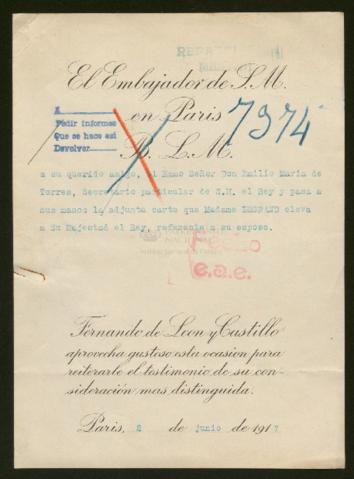 El Embajador de S. M.
en Paris
7974
A
Pedir informes
Que se hace así
Devolver
B. L. M.
a su querido amigo, el Exmo Señor Don Emilio María de
Torres, Secretario particular de S.M. el Rey y pasa a
sus manos la adjunta carta que Madame LEGRAND eleva
a Su Majestad el Rey, referente a su esposo.
Fecho
c.a.e.
Fernando de Leon y Castillo
aprovecha gustoso esta ocasion para
reiterarle el testimonio de su con-
sideración mas distinguida.
Paris, 2 de junio de 1917